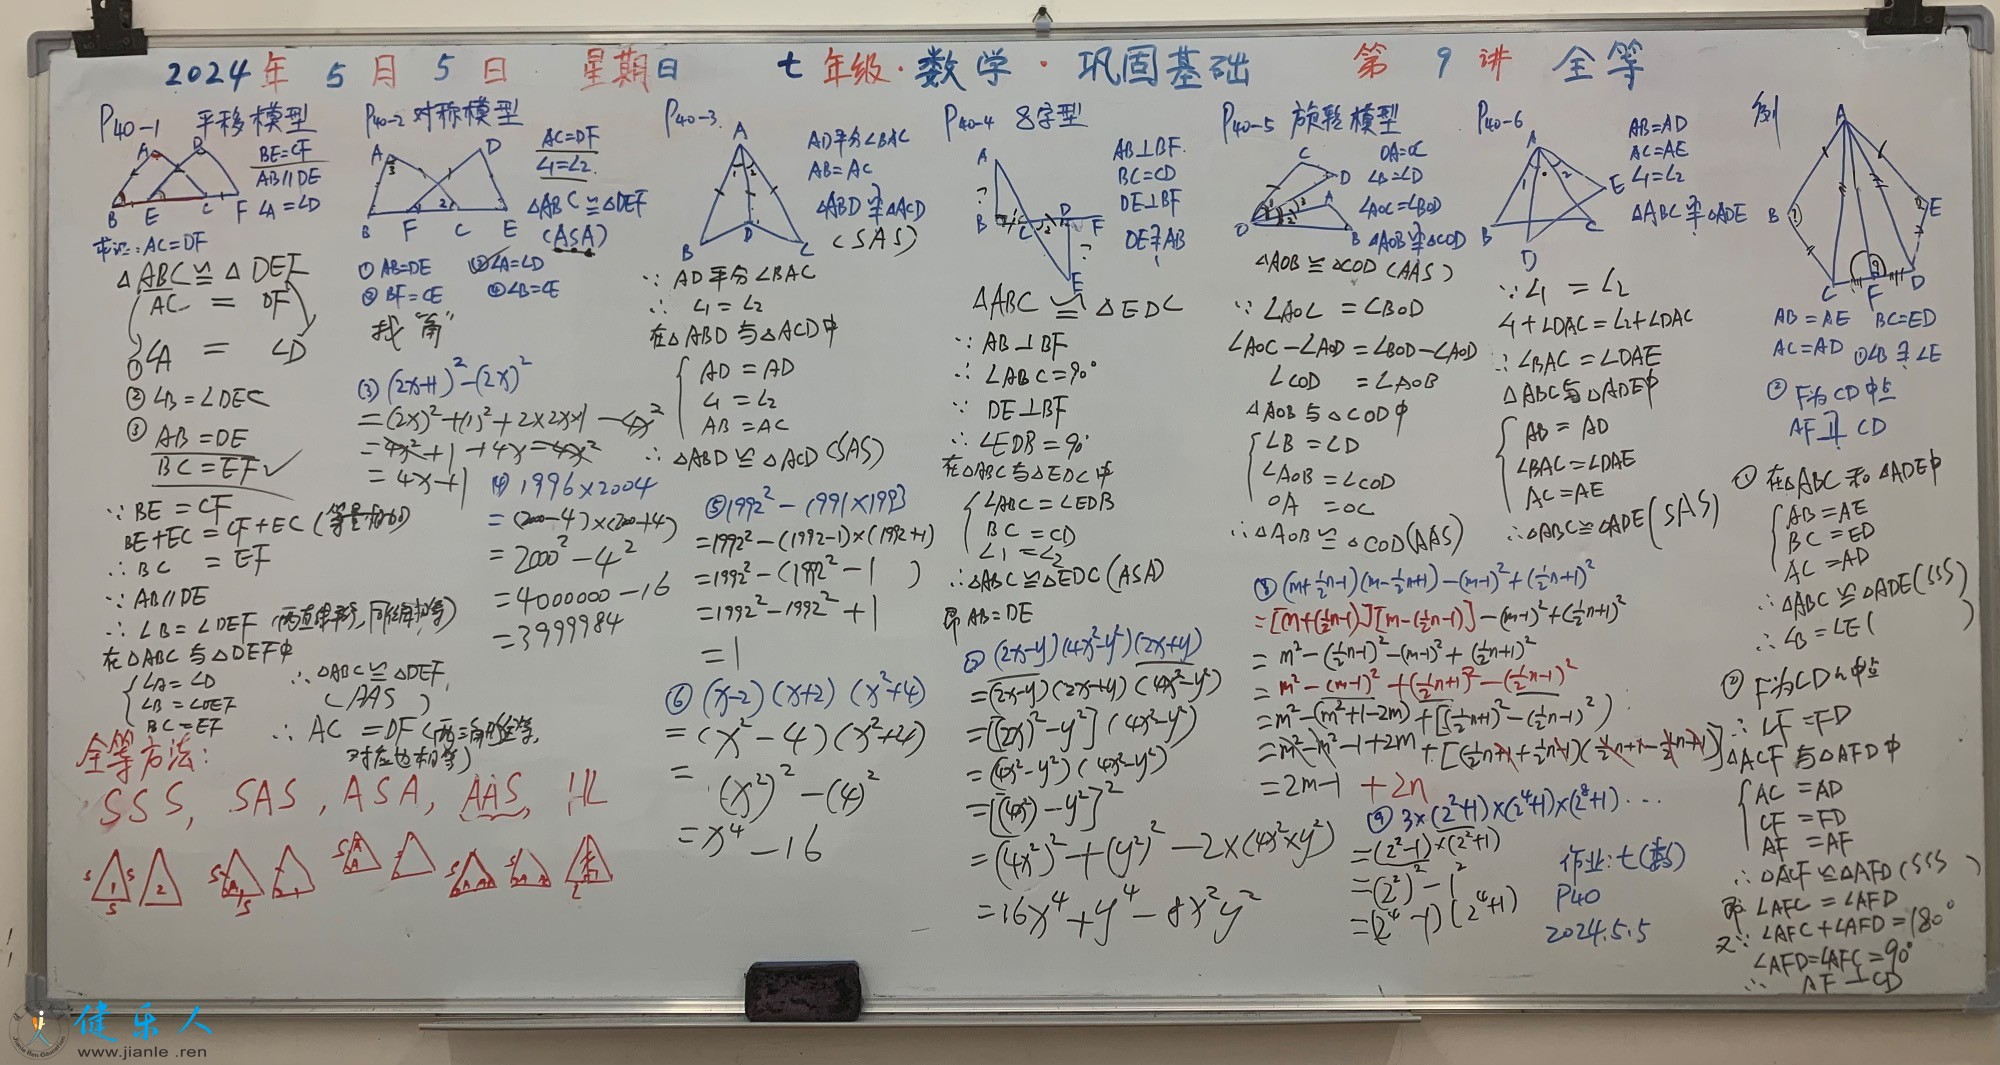 2024年 5月 5日 星期日 七年级·数学·巩固基础 第 9 讲 全等
P40-1 平移模型
A D
B E C F
BE=CF
AB∥DE
∠A=∠D
求证:AC=DF
△ABC≌△DEF
AC = DF
①∠A = ∠D
②∠B=∠DEC
③AB=DE
BC=EF✓
∵BE=CF
BE+EC=CF+EC(等量相加)
∴BC = EF
∵AB∥DE
∴∠B=∠DEF(两直线平行,同位角相等)
在△ABC与△DEF中
∠A=∠D
∠B=∠DEF
BC=EF
∴△ABC≌△DEF
(AAS)
∴AC=DF(两三角形全等,
对应边相等)
全等方法:
SSS, SAS, ASA, AAS, HL
P40-2 对称模型
A D
3
1 2
B F C E
AC=DF
∠1=∠2
△ABC≌△DEF
(ASA)
①AB=DE ②∠A=∠D
③BF=CE ④∠B=∠E
找"角"
(3)(2x+1)²-(2x)²
=(2x)²+(1)²+2×2x×1-4x²
=4x²+1+4x-4x²
=4x+1
(4)1996×2004
=(2000-4)×(2000+4)
=2000²-4²
=4000000-16
=3999984
P40-3
A
1 2
B D C
AD平分∠BAC
AB=AC
△ABD≌△ACD
(SAS)
∵AD平分∠BAC
∴∠1=∠2
在△ABD与△ACD中
AD=AD
∠1=∠2
AB=AC
∴△ABD≌△ACD(SAS)
⑤1992²-1991×1993
=1992²-(1992-1)×(1992+1)
=1992²-(1992²-1)
=1992²-1992²+1
=1
⑥(x-2)(x+2)(x²+4)
=(x²-4)(x²+4)
=(x²)²-(4)²
=x⁴-16
P40-4 8字型
A
B C D F
E
AB⊥BF
BC=CD
DE⊥BF
DE=AB
?
△ABC≌△EDC
∵AB⊥BF
∴∠ABC=90°
∵DE⊥BF
∴∠EDB=90°
在△ABC与△EDC中
∠ABC=∠EDB
BC=CD
∠1=∠2
∴△ABC≌△EDC(ASA)
即AB=DE
⑦(2x-y)(4x²-y²)(2x+y)
=(2x-y)(2x+y)(4x²-y²)
=[(2x)²-y²](4x²-y²)
=(4x²-y²)(4x²-y²)
=[(4x²)-y²]²
=(4x²)²+(y²)²-2×(4x²×y²)
=16x⁴+y⁴-8x²y²
P40-5 旋转模型
C
D
A
O B
OA=OC
∠B=∠D
∠AOC=∠BOD
△AOB≌△COD
△AOB≌△COD(AAS)
∵∠AOC=∠BOD
∠AOC-∠AOD=∠BOD-∠AOD
∠COD=∠AOB
△AOB与△COD中
∠B=∠D
∠AOB=∠COD
OA=OC
∴△AOB≌△COD(AAS)
⑧(m+½n-1)(m-½n+1)-(m-1)²+(½n+1)²
=[m+(½n-1)][m-(½n-1)]-(m-1)²+(½n+1)²
=m²-(½n-1)²-(m-1)²+(½n+1)²
=m²-(m-1)²+(½n+1)²-(½n-1)²
=m²-(m²+1-2m)+[(½n+1)²-(½n-1)²)
=m²-m²-1+2m+[(½n+1+½n-1)(½n+1-½n+1)]
=2m-1+2n
⑨3×(2²+1)×(2⁴+1)×(2⁸+1)...
=(2²-1)×(2²+1)
=(2²)²-1²
=(2⁴-1)(2⁴+1)
作业:七(数)
P40
2024.5.5
P40-6
A
1 2
E
B C
D
AB=AD
AC=AE
∠1=∠2
△ABC≌△ADE
∵∠1=∠2
∠1+∠DAC=∠2+∠DAC
∴∠BAC=∠DAE
△ABC与△ADE中
AB=AD
∠BAC=∠DAE
AC=AE
∴△ABC≌△ADE(SAS)
例
A
B E
C F D
AB=AE BC=ED
AC=AD ①∠B=∠E
②F为CD中点
AF⊥CD
①在△ABC和△ADE中
AB=AE
BC=ED
AC=AD
∴△ABC≌△ADE(SSS)
∴∠B=∠E( )
②F为CD中点
∴CF=FD
△ACF与△AFD中
AC=AD
CF=FD
AF=AF
∴△ACF≌△AFD(SSS)
即∠AFC=∠AFD
又∵∠AFC+∠AFD=180°
∠AFD=∠AFC=90°
∴AF⊥CD
健乐人
www.jianle.ren